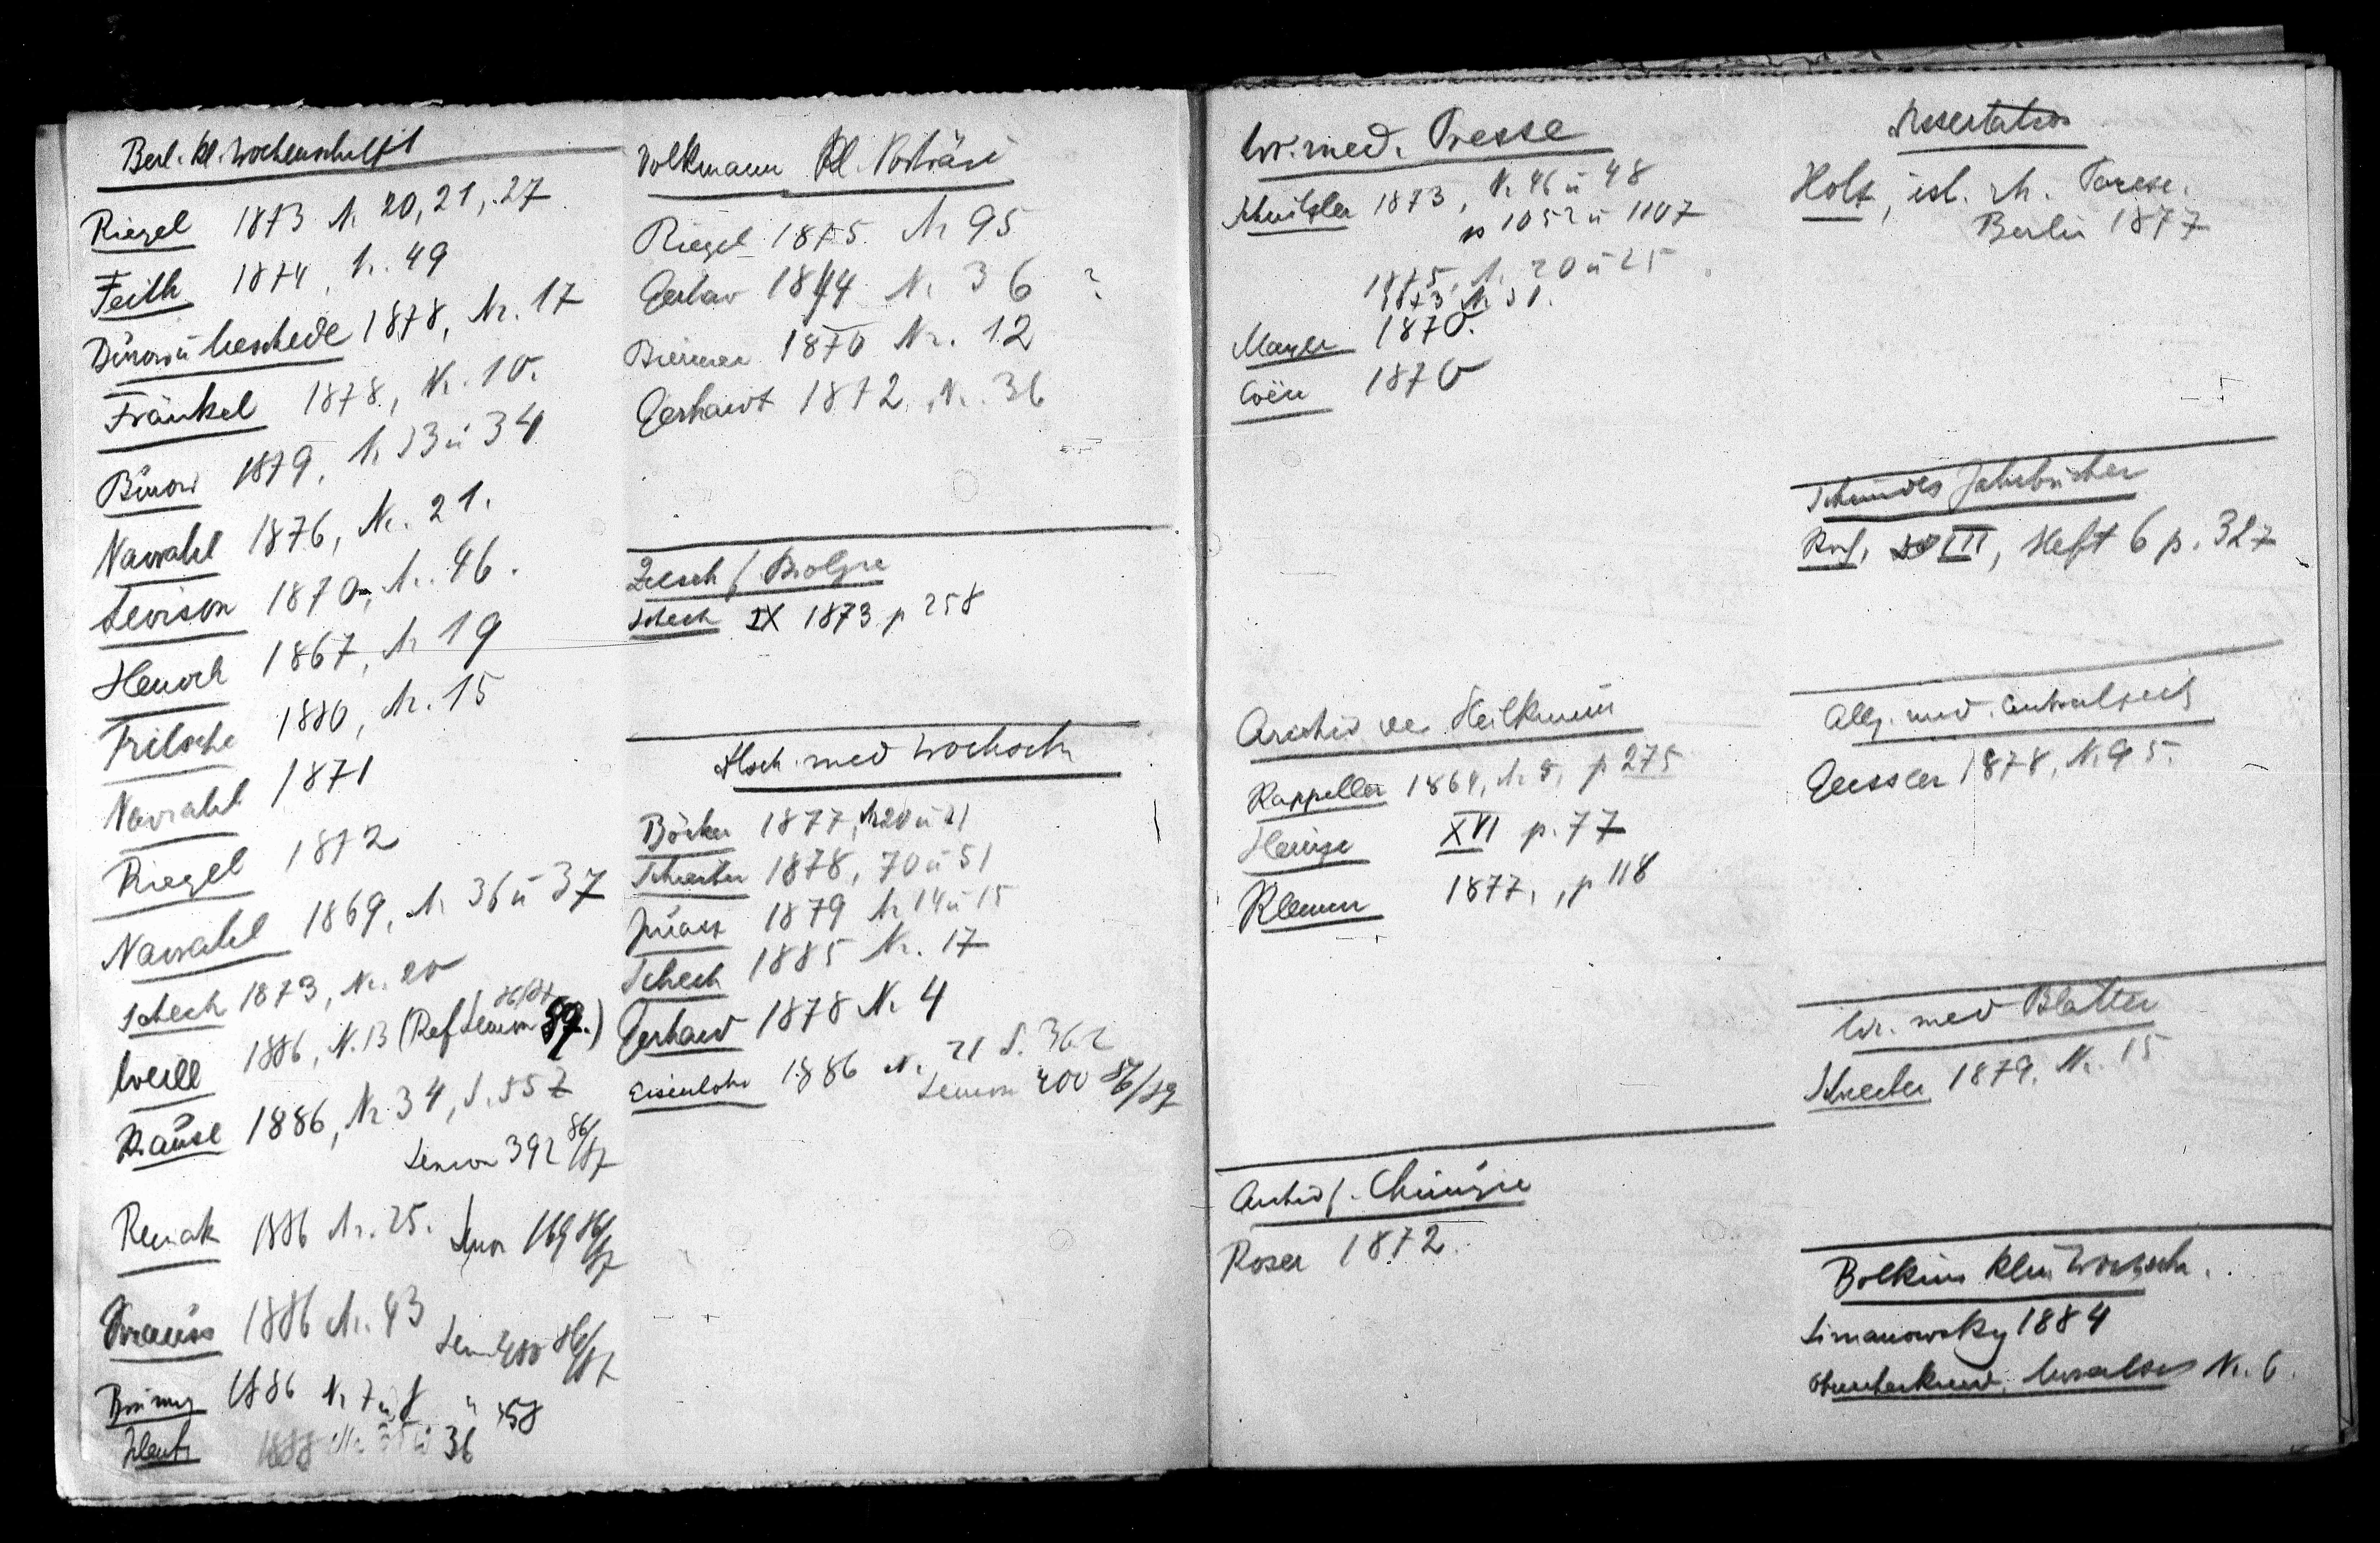 Berl. kl. Wochenschrift
Riegel 1873 N. 20, 21, 27
Feith 1874, N. 49
Burow u Meschede 1878, Nr. 17
Fränkel 1878, N. 10.
Burow 1879, N. 33 u 34
Nawratil 1876, Nr. 21.
Levison 1870, N. 46.
Henoch 1867, N 19
Fritsche 1880, Nr. 15
Nawratil 1871
Riegel 1872
Nawratil 1869, N. 36 u 37
Schech 1873, Nr. 20
Weill 1886, N. 13 (Ref Semon 86/87 89.)
Krause 1886, Nr 34, S. 557
Semon 392 86/87
Remak 1886 Nr. 25. Semon 169 86/87
Strauss 1886 Nr. 43
Semon 400 86/87
1886 Nr 7 u 8 " 458
36
Volkmann Kl. Vorträge
Riegel 1875 N 95
1844 N. 36 ?
Biermer 1870 Nr. 12
Gerhardt 1872, N. 36
Ztsch f. Biologie
Schech IX 1873 p 258
Dtsch. med Wochsch
Böcker 1877, N 20 u 21
Schreiber 1878, 50 u 51
Jurasz 1879 N 14 u 15
Schech 1885 N. 17
Gerhard 1878 N. 4
Eisenlohr 1886 N. 21 S. 362
Semon 400 86/87
Wr. med. Presse
Schnitzler 1873, N. 46 u 48
p 1052 u 1107
1875, N. 20 u 25
1873 N 51.
Mayer 1870.
Coën 1870
Archiv der Heilkunde
Kappeller 1864, N. 5, p 275
Heinze XVI p. 77
Klemm 1877, p 118
Archiv f. Chirurgie
Roser 1872.
Dissertation
Holz, isl. rh. Parese.
Berlin 1877
Schmidts Jahrbücher
Heft 6 p. 327
Allg. med. Centralzeit
Geissler 1878, N. 95.
Wr. med Blätter
Schreiber 1879, Nr. 15
Botkins klin Wochsch.
Simanowsky 1884
Nr. 6.